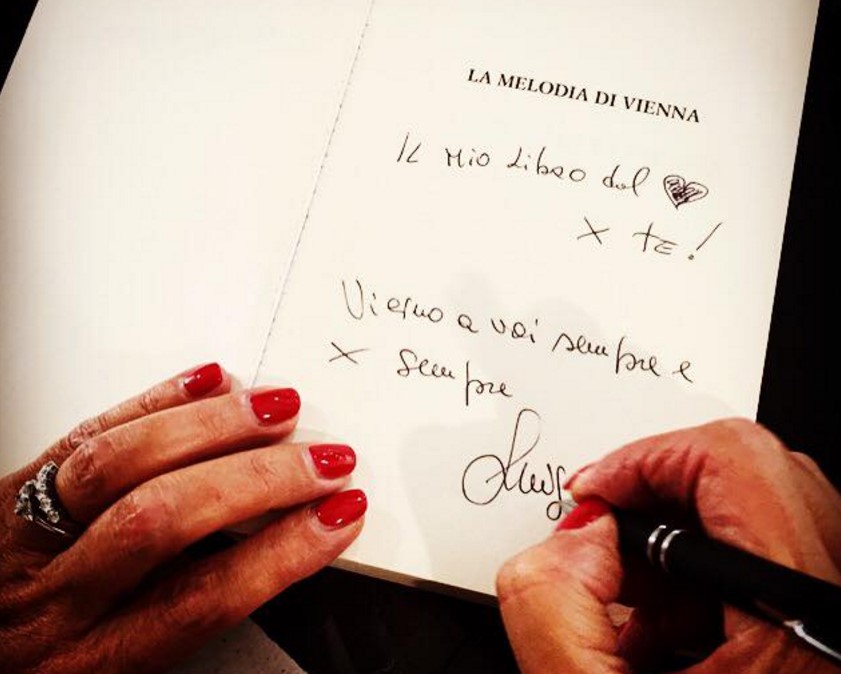 LA MELODIA DI VIENNA
IL Mio Libro dal
x te!
Vicino a voi sempre e
x sempre